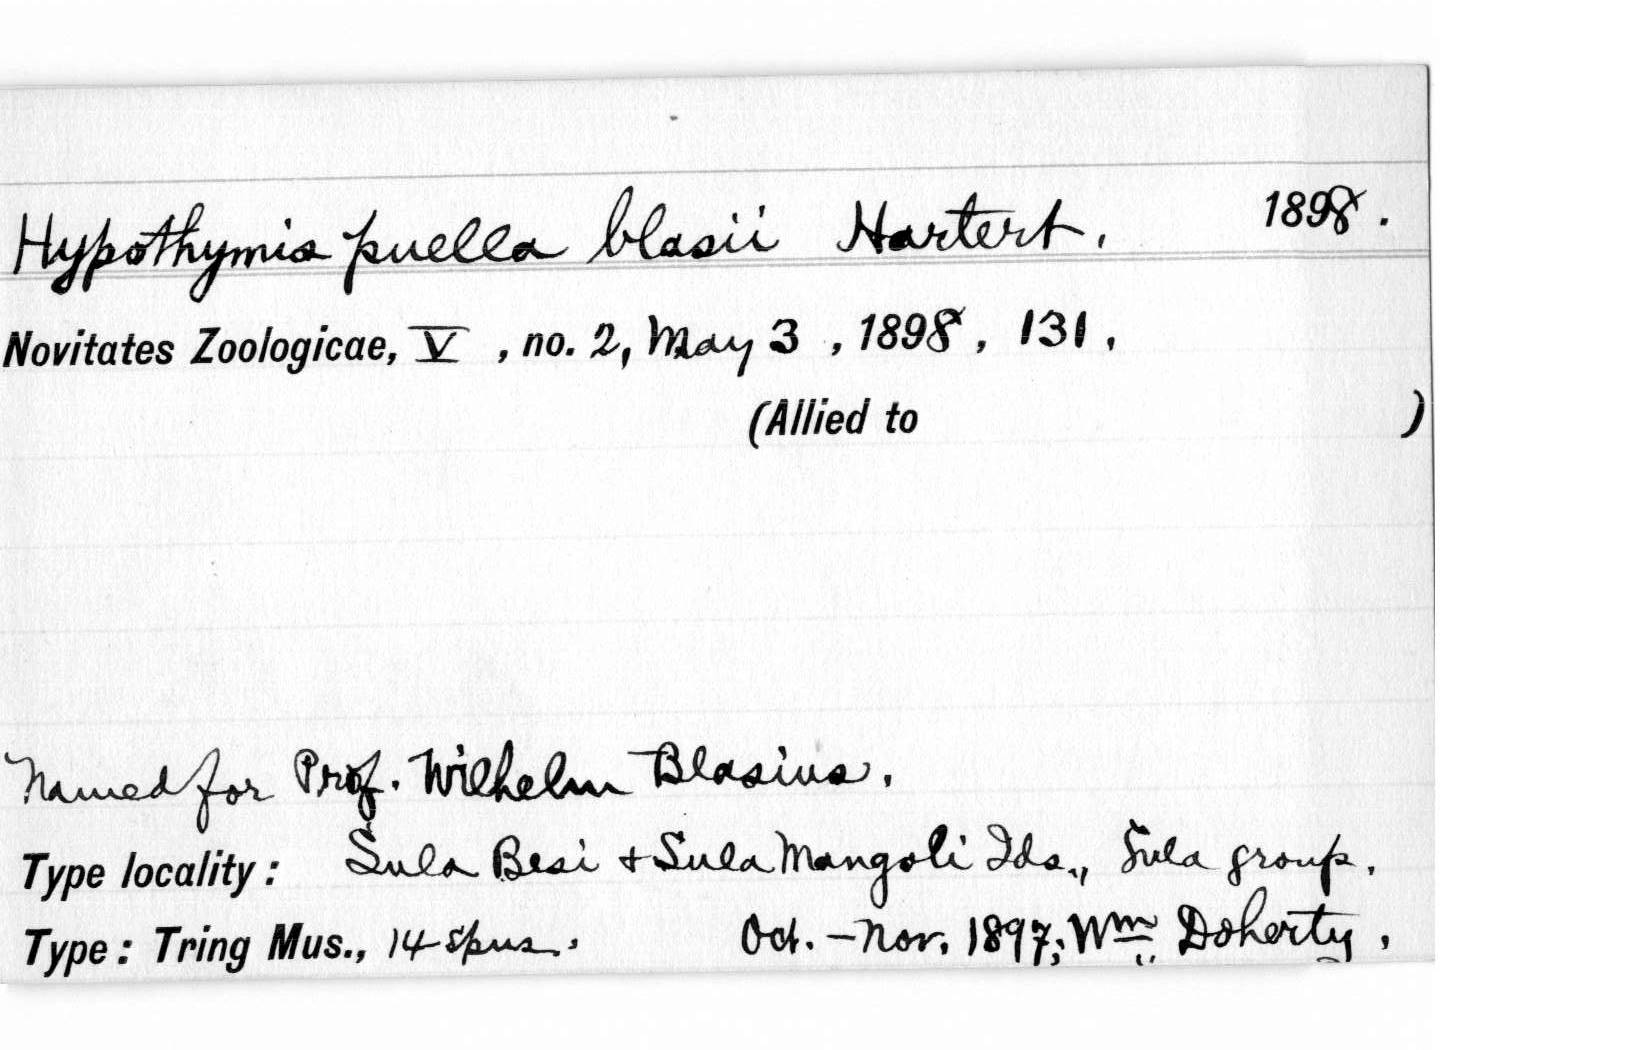 Hypothymis puella blasii Hartert. 1898.
Novitates Zoologicae, V, no. 2, May 3, 1898, 131.
(Allied to )
Named for Prof. Wilhelm Blasius.
Type locality: Sula Besi + Sula Mangoli Ids., Sula group.
Type: Tring Mus., 14 spns. Oct. – Nov. 1897; Wm Doherty.